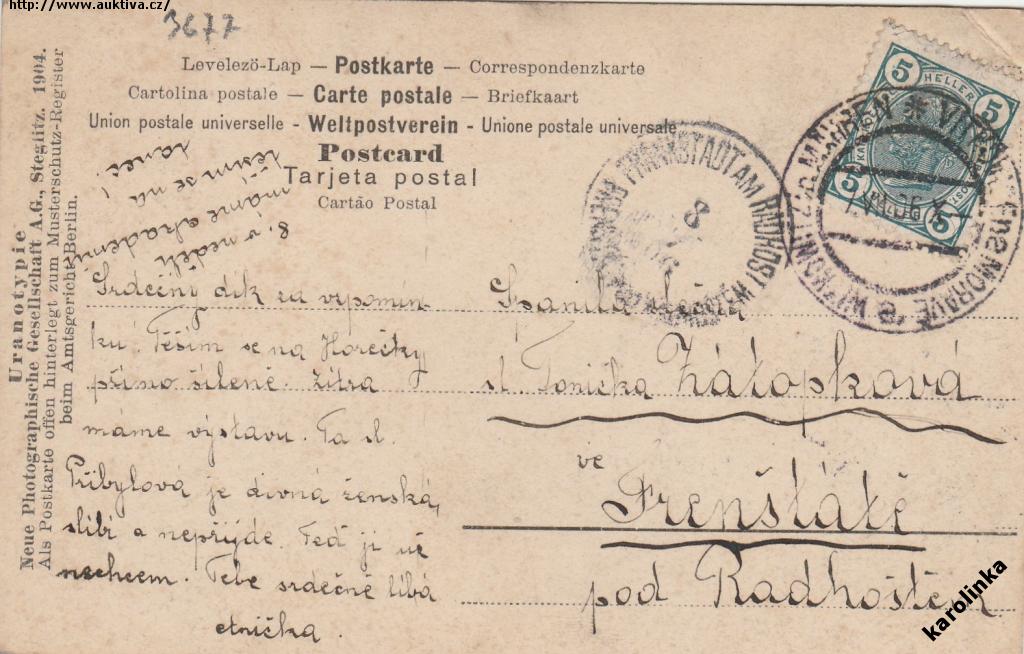 http://www.auktiva.cz/
3677
Levelezö-Lap — Postkarte — Correspondenzkarte
Cartolina postale — Carte postale — Briefkaart
Union postale universelle - Weltpostverein - Unione postale universale
Postcard
Tarjeta postal
Cartão Postal
Uranotypie
Neue Photographische Gesellschaft A.G., Steglitz. 1904.
Als Postkarte offen hinterlegt zum Musterschutz-Register
beim Amtsgericht Berlin.
5 HELLER 5
5 5
FRANKSTADT AM RADHOST
8
8. v neděli
máme
těším se na
Srdečný dík za vzpomín-
ku. Těším se na Horečky
přímo šíleně. Zítra
máme výstavu. Ta sl.
Přibylová je divná ženská,
slíbí a nepřijde. Teď ji už
nechcem. Tebe srdečně líbá
etnička.
sl. Tonička Zátopková
ve
Frenštátě
pod Radhoštěm
karolinka